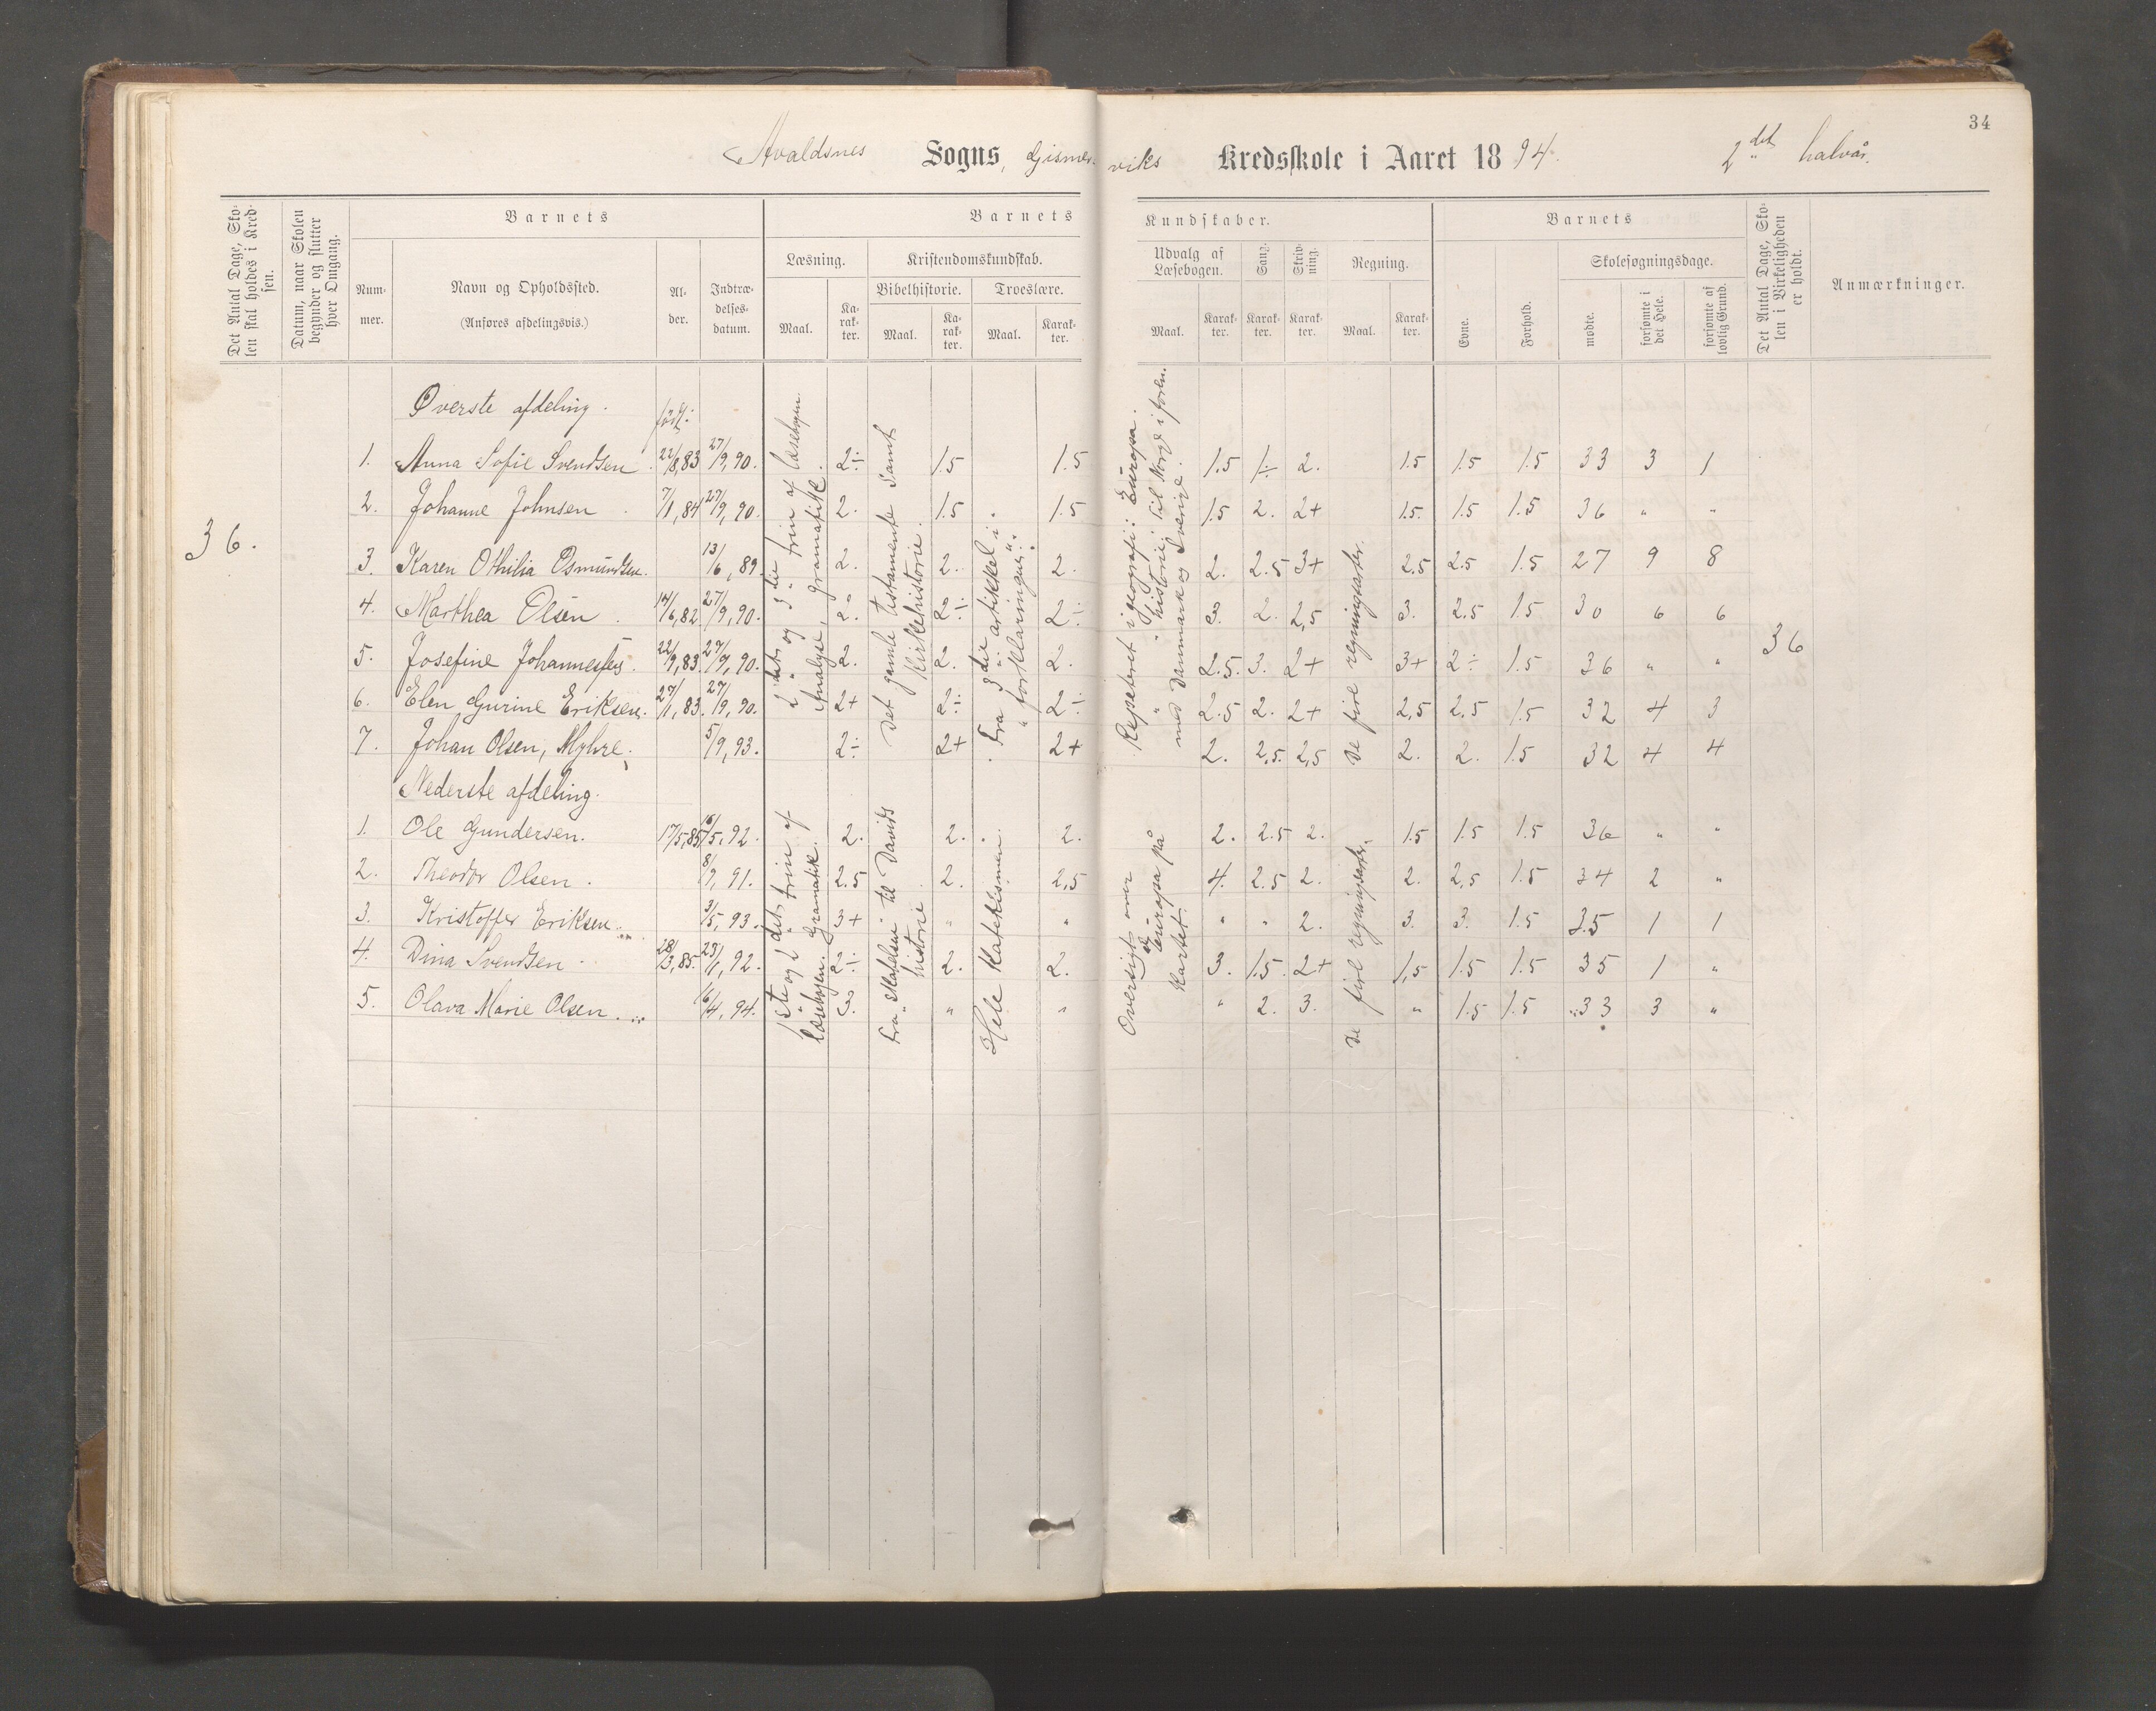 34
Avaldsnes Sogns, Gismer- viks Kredsskole i Aaret 1894. 2det halvår.
Det Antal Dage, Skolen skal holdes i Kredsen.
Datum, naar Skolen begynder og slutter hver Omgang.
Barnets
Nummer.
Navn og Opholdssted.
(Anføres afdelingsvis.)
Alder.
Indtrædelsesdatum.
Barnets Kundskaber.
Læsning.
Maal. Karakter.
Kristendomskundskab.
Bibelhistorie. Troeslære.
Maal. Karakter. Maal. Karakter.
Udvalg af Læsebogen.
Maal. Karakter.
Sang. Karakter.
Skrivning. Karakter.
Regning.
Maal. Karakter.
Barnets
Evne. Forhold.
Skolesøgningsdage.
mødte. forsømte i det Hele. forsømte af lovlig Grund.
Det Antal Dage, Skolen i Virkeligheden er holdt.
Anmærkninger.
36.
Øverste afdeling. født:
1. Anna Sofie Svendsen. 22/8,83 27/9,90. 2÷ 1.5 1.5 1.5 1÷ 2. 1.5 1.5 1.5 33 3 1
2. Johanne Johnsen. 7/1,84 27/9,90. 2. 1.5 1.5 1.5 2. 2+ 1.5. 1.5 1.5 36 " "
3. Karen Othilia Osmundsen. 13/6,89. 2. 2. 2. 2. 2.5 3+ 2.5 2.5 1.5 27 9 8
4. Marthea Olsen. 14/6,82 27/9,90. 2. 2÷ 2÷ 3. 2. 2,5 3. 2.5 1.5 30 6 6
5. Josefine Johannesen. 22/9,83 27/9,90. 2. 2. 2. 2.5. 3. 2+ 3+ 2÷ 1.5 36 " "
6. Elen Gurine Eriksen. 27/1,83. 27/9,90. 2+ 2÷ 2÷ 2.5 2. 2+ 2,5 2,5 1.5 32 4 3
7. Johan Olsen, Myhre. 5/9,93. 2÷ 2+ 2+ 2. 2,5. 2,5 2. 2. 1.5 32 4 4
36
2det og 3die trin af læsebogen.
Analyse, Grammatikk.
Det gamle testamente samt
kirkehistorie.
Fra 3die artikkel i
" forklaringen.
Repeteret i geografi: Europa.
" " historie: til Norge i foren.
med Danmark og Sverige.
De fire regningsarter.
Nederste afdeling.
1. Ole Gundersen. 17/5,85 16/5,92. 2. 2. 2. 2. 2.5 2. 1.5 1.5 1.5 36 " "
2. Theodor Olsen. 8/7,91. 2.5 2. 2,5 4. 2.5 2. 2. 2,5 1.5 34 2 "
3. Kristoffer Eriksen. 3/5,93. 3+ " " " " 2. 3. 3. 1.5 35 1 1
4. Dina Svendsen 28/3,85. 23/1,92. 2÷ 2. 2. 3. 1.5. 2+ 1,5 1.5 1.5 35 1 "
5. Olava Marie Olsen. 16/4,94. 3. " " " 2. 3. " 1.5 1.5 33 3 "
1ste og 2det trin af
læsebogen. Gramatik.
Fra Skabelsen til Davids
historie
Hele Katekismen
Oversigt over
Europa på
Kartet.
De fire regningsarter.